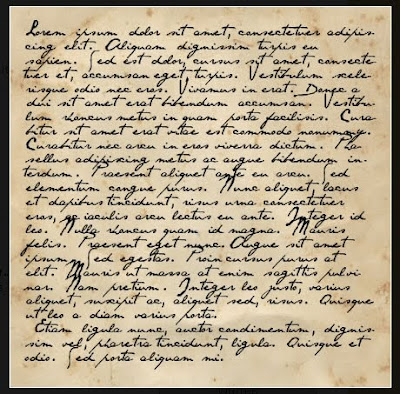 Lorem ipsum dolor sit amet, consectetuer adipis-
cing elit. Aliquam dignissim turpis eu
sapien. Sed est dolor, cursus sit amet, consecte
tuer et, accumsan eget, turpis. Vestibulum scele-
risque odio nec eros. Vivamus in erat. Donec a
dui sit amet erat bibendum accumsan. Vestibu-
lum rhoncus metus in quam porta facilisis. Cura
bitur sit amet erat vitae est commodo nonummy.
Curabitur nec arcu in eros viverra dictum. Pha
sellus adipiscing metus ac augue bibendum in-
terdum. Praesent aliquet ante eu arcu. Sed
elementum congue purus. Nunc aliquet, lacus
et dapibus tincidunt, risus urna consectetuer
eros, ac iaculis arcu lectus eu ante. Integer id
leo. Nulla rhoncus quam id magna. Mauris
felis. Praesent eget nunc. Augue sit amet
ipsum. Sed egestas. Proin cursus purus at
elit. Mauris ut massa at enim sagittis pulvi
nar. Nam pretium. Integer leo justo, varius
aliquet, suscipit ac, aliquet sed, risus. Quisque
ut leo a diam varius porta.
Etiam ligula nunc, auctor condimentum, dignis-
sim vel, pharetra tincidunt, ligula. Quisque et
odio. Sed porta aliquam mi.